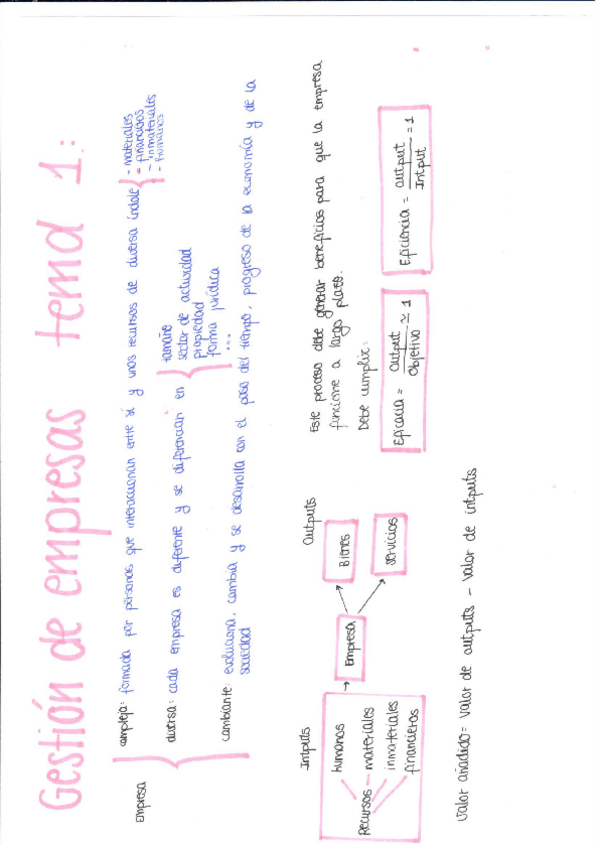 Gestión de empresas tema 1:
Empresa
compleja: formada por personas que interaccionan entre sí y unos recursos de diversa índole
- materiales
- financieros
- inmateriales
- humanos
diversa: cada empresa es diferente y se diferencian en
tamaño
sector de actividad
propiedad
forma jurídica
...
cambiante: evoluciona, cambia y se desarrolla con el paso del tiempo, progreso de la economía y de la
sociedad
Intputs
Recursos
humanos
materiales
inmateriales
financieros
Empresa
Outputs
Bienes
servicios
Este proceso debe generar beneficios para que la empresa
funcione a largo plazo.
Debe cumplir:
Eficacia = output / Objetivo ≃ 1
Eficiencia = output / Intput = 1
Valor añadido = Valor de outputs - Valor de intputs